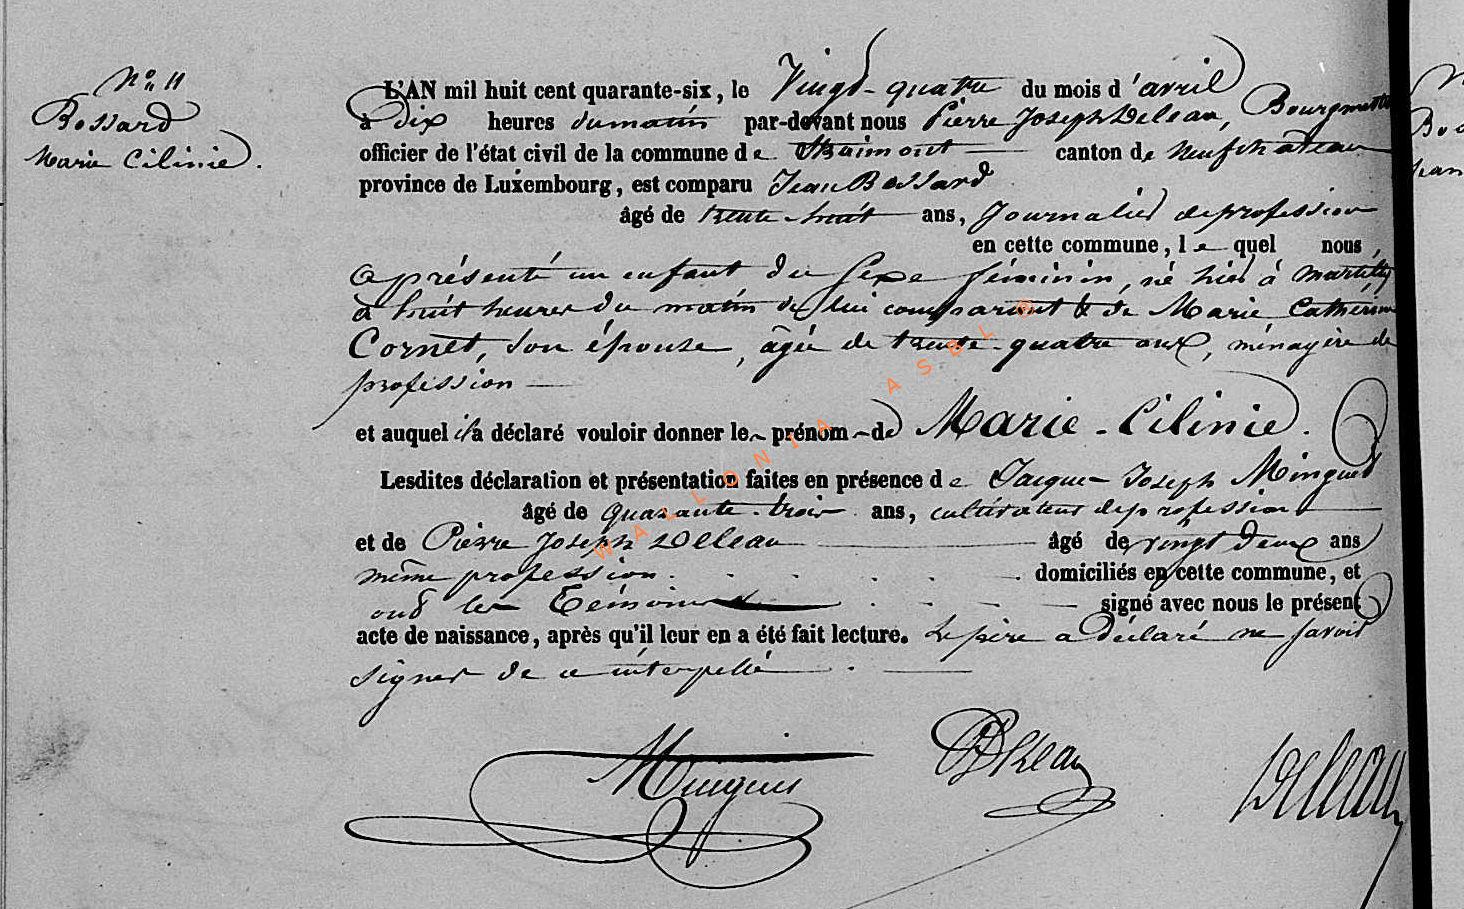 N° 11
Bossard
Marie Cilinie.
L'AN mil huit cent quarante-six, le Vingt-quatre du mois d'avril
à Dix heures du matin par-devant nous Pierre Joseph Deleau, Bourgmestre
officier de l'état civil de la commune de Straimont canton de Neufchateau
province de Luxembourg, est comparu Jean Bossard
âgé de trente-huit ans, Journalier de profession
en cette commune, le quel nous
a présenté un enfant du sexe féminin, né hier à Martilly
à huit heures du matin de lui comparant & de Marie Catherine
Cornet, son épouse, âgée de trente-quatre ans, ménagère de
profession
et auquel il a déclaré vouloir donner le prénom de Marie-Cilinie.
Lesdites déclaration et présentation faites en présence de Jacques Joseph Minguet
âgé de quarante-trois ans, cultivateur de profession
et de Pierre Joseph Deleau âgé de vingt deux ans
même profession. domiciliés en cette commune, et
ont les témoins signé avec nous le présent
acte de naissance, après qu'il leur en a été fait lecture. Le père a déclaré ne savoir
signer de ce interpellé.
Minguet PJDeleau Deleau
WALLONIA ASBL ©
Bo
Jean